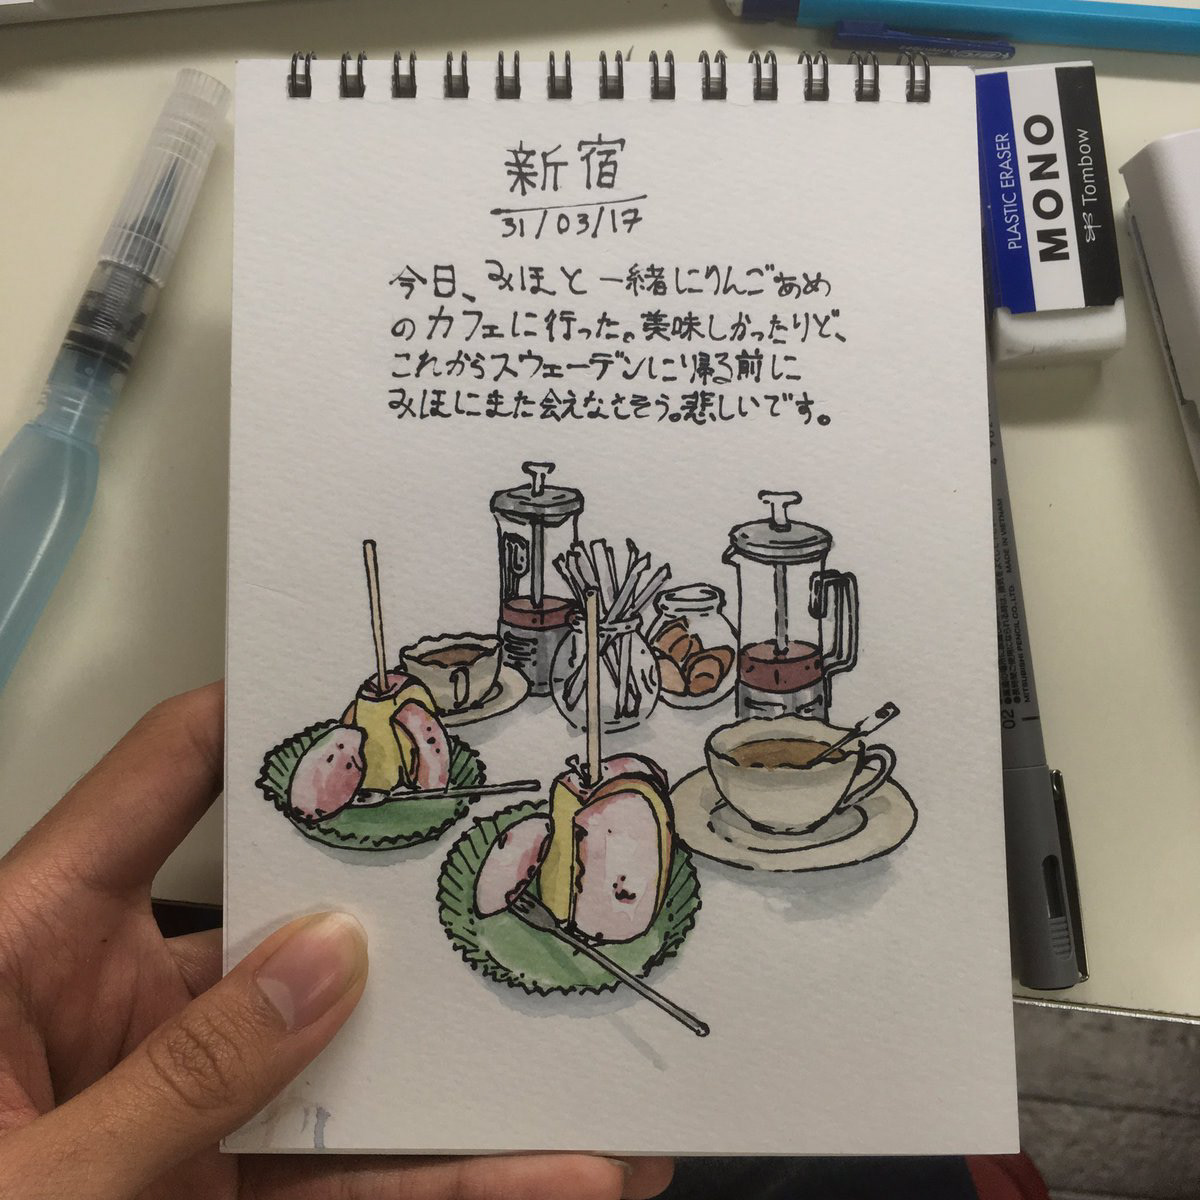 新宿
31/03/17
今日、みほと一緒にりんごあめ
のカフェに行った。美味しかったけど、
これからスウェーデンに帰る前に
みほにまた会えなさそう。悲しいです。
PLASTIC ERASER
MONO
Tombow
02
MITSUBISHI PENCIL CO., LTD MADE IN VIETNAM